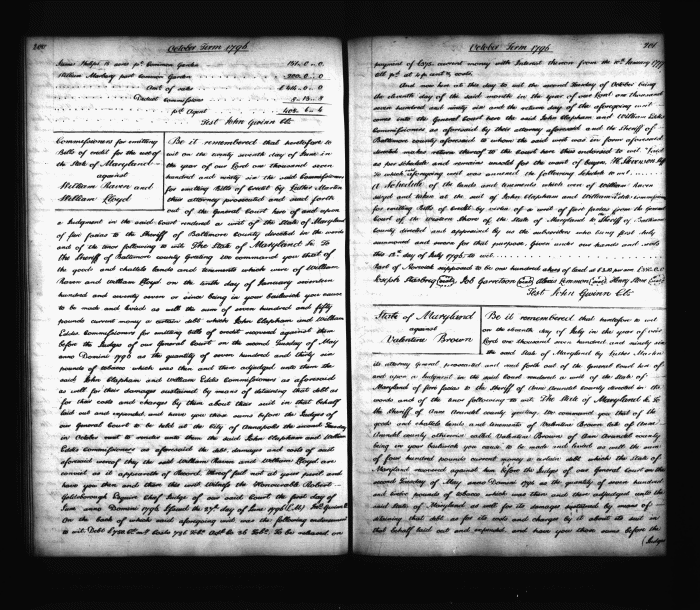 200
October Term 1796
William Marbury part Common Garden 200..0..0
Amount of sales £ 414..0..0
Deduct Commissions 5..13..6
prd. Agent 408..6..6
Test John Gwinn Clk
Commissioners for emitting
Bills of credit for the use of
the State of Maryland
against
William Raven and
William Lloyd
Be it remembered that heretofore to
wit on the twenty seventh day of June in
the year of our Lord one thousand seven
hundred and ninety six the said Commissioners
for emitting Bills of Credit by Luther Martin
their attorney prosecuted and sued forth
out of the General Court here of and upon
a Judgment in the said Court rendered a writ of the State of Maryland
of fieri facias to the Sheriff of Baltimore County directed in the words
and of the tenor following to wit The State of Maryland Sc. To
the Sheriff of Baltimore County Greeting We command you that of
the goods and chattels lands and tenements which were of William
Raven and William Lloyd on the tenth day of January seventeen
hundred and seventy seven or since being in your bailiwick you cause
to be made and levied as well the sum of seven hundred and fifty
pounds current money a certain debt which John Clapham and William
Eddis Commissioners for emitting bills of credit recovered against them
before the Judges of our General Court on the second Tuesday of May
anno Domini 1790 as the quantity of seven hundred and thirty six
pounds of tobacco which was then and there adjudged unto the
said John Clapham and William Eddis Commissioners as aforesaid
as well for their damages sustained by means of detaining that debt as
for their costs and charges by them about their suit in that behalf
laid out and expended and have you those sums before the Judges of
our General Court to be held at the City of Annapolis the second Tuesday
in October next to render unto them the said John Clapham and William
Eddis Commissioners as aforesaid the debt, damages and costs of suit
aforesaid whereof they the said William Raven and William Lloyd are
convict as it appears of Record. Hereof fail not at your peril and
have you then and there this writ Witness the Honourable Robert
Goldsborough Esquire Chief Judge of our said Court the first day of
June anno Domini 1796 Issued the 27th day of June 1796
On the back of which said aforegoing writ was the following endorsement
to wit. Debt £750
201
October Term 1796
payment of £375 current money with Interest thereon from the 10th January 1777
And now here at this day to wit the second Tuesday of October being
the eleventh day of the said month in the year of our Lord one thousand
seven hundred and ninety six and the return day of the aforegoing writ
came into the General Court here the said John Clapham and William Eddis
Commissioners as aforesaid by their attorney aforesaid and the Sheriff of
Baltimore County aforesaid to whom the said writ was in form aforesaid
directed makes return thereof to the Court here thus endorsed to wit
as per schedule and remains unsold for the want of buyers
To which aforegoing writ was annexed the following Schedule to wit
A Schedule of the lands and tenements which were of William Raven
Lloyd and taken at the suit of John Clapham and William Eddis Commissioners
for emitting Bills of credit by virtue of a writ of fieri facias from the General
Court of the Western Shore of the State of Maryland to Sheriff of Baltimore
County directed and appraised by us the subscribers who being first duly
summoned and sworn for that purpose, given under our hands and seals
this 13th day of July 1796 to wit
Part of supposed to be one hundred acres of land at
(seal) (seal) (seal) (seal)
Test John Gwinn Clk
State of Maryland
against
Valentine Brown
Be it remembered that heretofore to wit
on the eleventh day of July in the year of our
Lord one thousand seven hundred and ninety six
the said State of Maryland by Luther Martin
its attorney General prosecuted and sued forth out of the General Court here of
and upon a Judgment in the said Court rendered a writ of the State of
Maryland of fieri facias to the Sheriff of Ann Arundel County directed in the
words and of the tenor following to wit The State of Maryland Sc. To
the Sheriff of Ann Arundel County greeting We command you that of the
goods and chattels lands and tenements of Valentine Brown late of Ann
Arundel County otherwise called Valentine Brown of Ann Arundel County
being in your bailiwick you cause to be made and levied as well the sum
of four hundred pounds current money a certain debt which the State of
Maryland recovered against him before the Judges of our General Court on the
second Tuesday of May anno Domini 1796 as the quantity of seven hundred
and twelve pounds of tobacco which was then and there adjudged unto the
said State of Maryland as well for its damages sustained by means of
detaining that debt as for its costs and charges by it about its suit in
that behalf laid out and expended, and have you those sums before the
(Judges